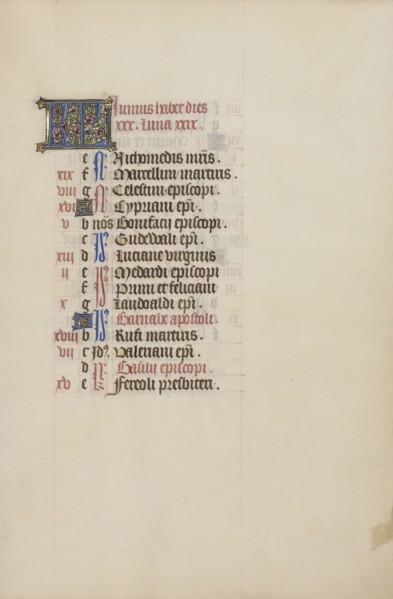 KL Iunius habet dies
xxx. Luna xxix.
e N Nichomedis mris.
xix f Marcellini martiris.
viii g N Celestini episcopi.
xvi A Cypriani epi.
v b nos Bonifacii episcopi.
c Gudewali epi.
xiii d Luciane virginis
ii e Medardi episcopi
f Primi et feliciani
x g Landoaldi epi.
A Barnabe apostoli.
xviii b Rufi martiris.
vii c Id9 Valeriani epi.
d Basilii episcopi.
xv e Fereoli presbiteri.